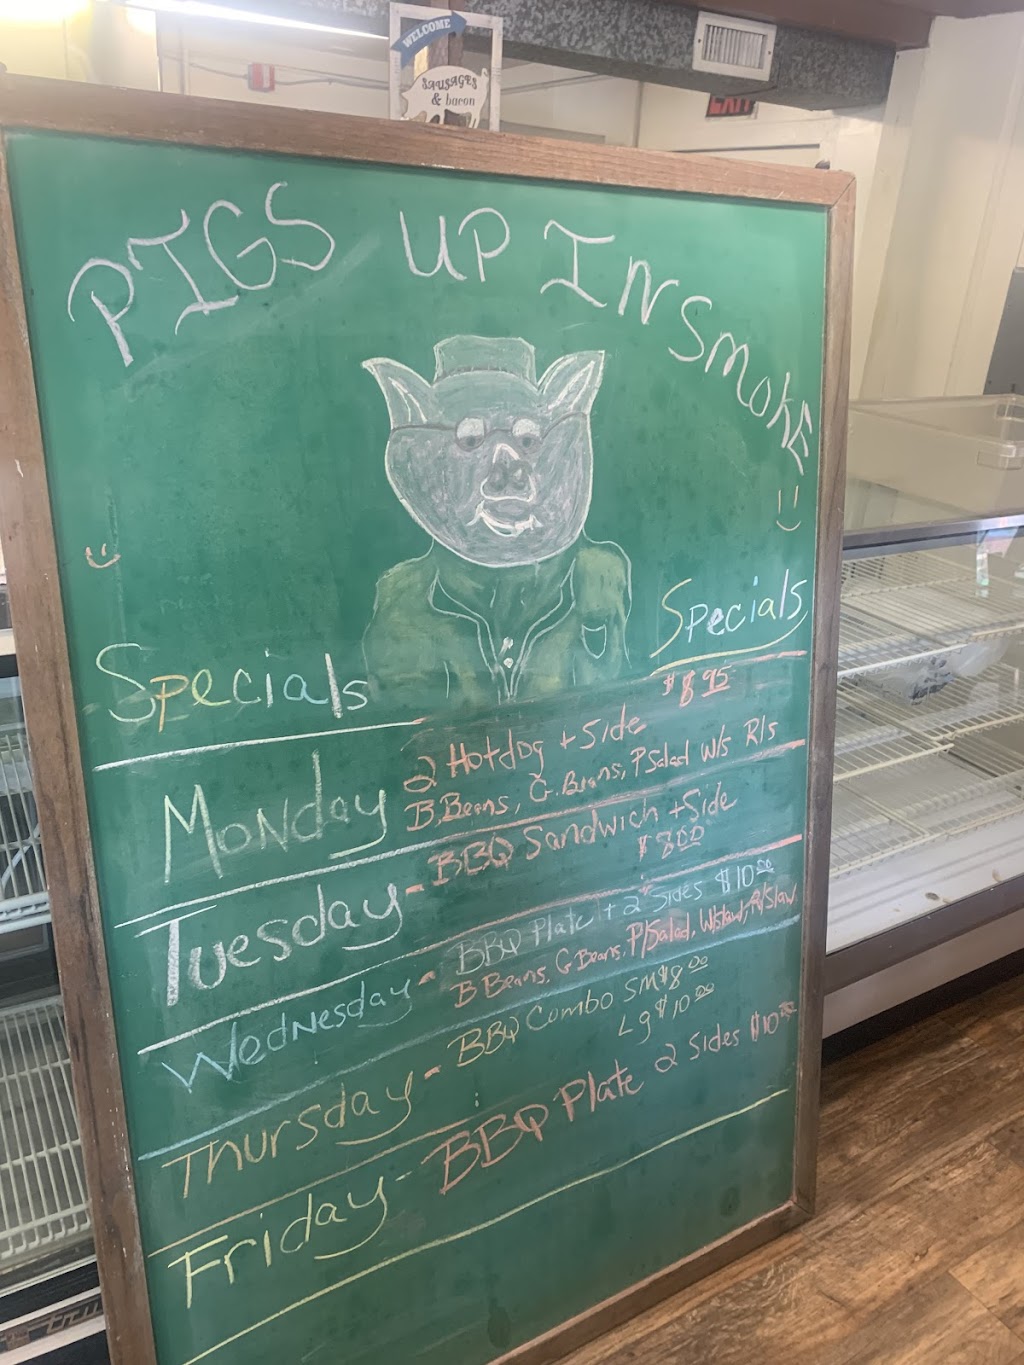 WELCOME
SAUSAGES
& bacon
EXIT
PIGS UP IN SMOKE
Specials Specials
Monday 2 Hotdog + Side $8.95
B.Beans, G.Beans, P Salad W/s R/s
Tuesday - BBQ Sandwich + Side
$8.00
Wednesday - BBQ Plate + 2 Sides $10.00
B Beans, G Beans, P/Salad, W/slaw, R/slaw
Thursday - BBQ Combo SM $8.00
Lg $10.00
Friday - BBQ Plate 2 Sides $10.00